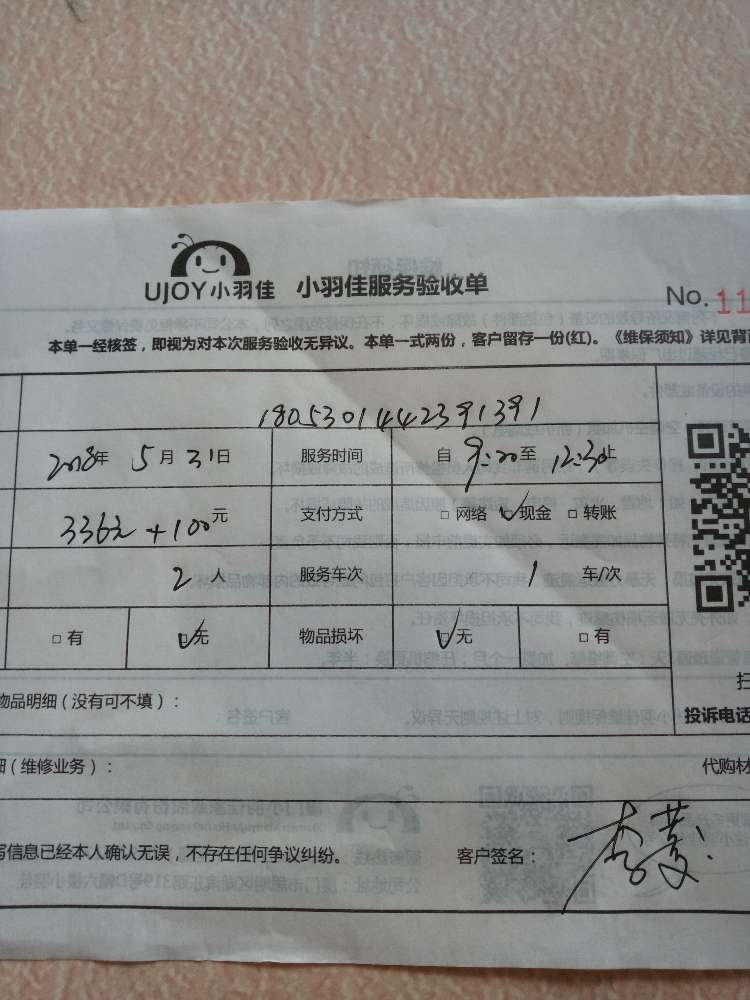 UJOY小羽佳 小羽佳服务验收单
No. 11
本单一经核签，即视为对本次服务验收无异议。本单一式两份，客户留存一份(红)。《维保须知》详见背
1805301442391391
2018年 5月 31日 服务时间 自 9:20至 12:30止
336元+100元 支付方式 □ 网络 ✓现金 □ 转账
2人 服务车次 1 车/次
□ 有 ✓无 物品损坏 ✓无 □ 有
物品明细（没有可不填）：
投诉电话
细（维修业务）：
代购材
写信息已经本人确认无误，不存在任何争议纠纷。 客户签名：